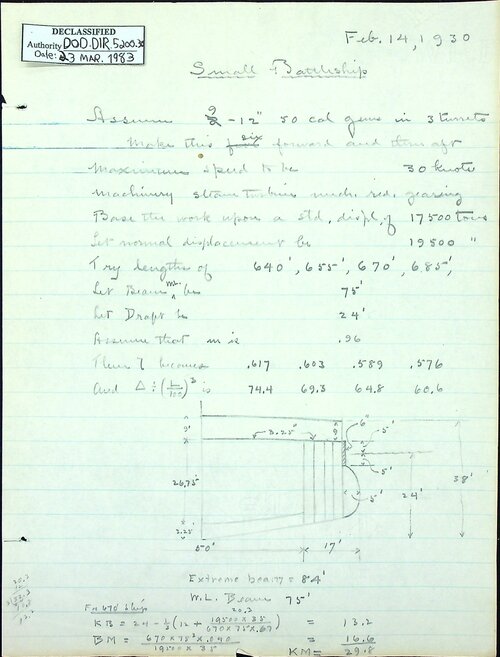 DECLASSIFIED
Authority DOD.DIR.5200.30
Date: 23 MAR. 1983
Feb. 14, 1930
Small Battleship
Assume 9 - 12" 50 cal guns in 3 turrets
Make this six forward and three aft
Maximum speed to be 30 knots
Machinery steam turbine mech. red. gearing
Base the work upon a std. displ. of 17500 tons
Let normal displacement be 19500 "
Try lengths of 640', 655', 670', 685',
Let Beam WL be 75'
Let Draft be 24'
Assume that m is .96
Then l becomes .617 .603 .589 .576
and Δ ÷ (L/100)³ is 74.4 69.3 64.8 60.6
3.25"
9'
6"
5'
5'
5'
26.75'
24'
38'
3.25'
50'
17'
Extreme beam = 84'
W.L. Beam 75'
For 670 ship
20.3
KB = 24 - ⅓(12 + 19500 x 35 / 670 x 75 x .67) = 13.2
BM = 670 x 75³ x .040 / 19500 x 35 = 16.6
KM = 29.8